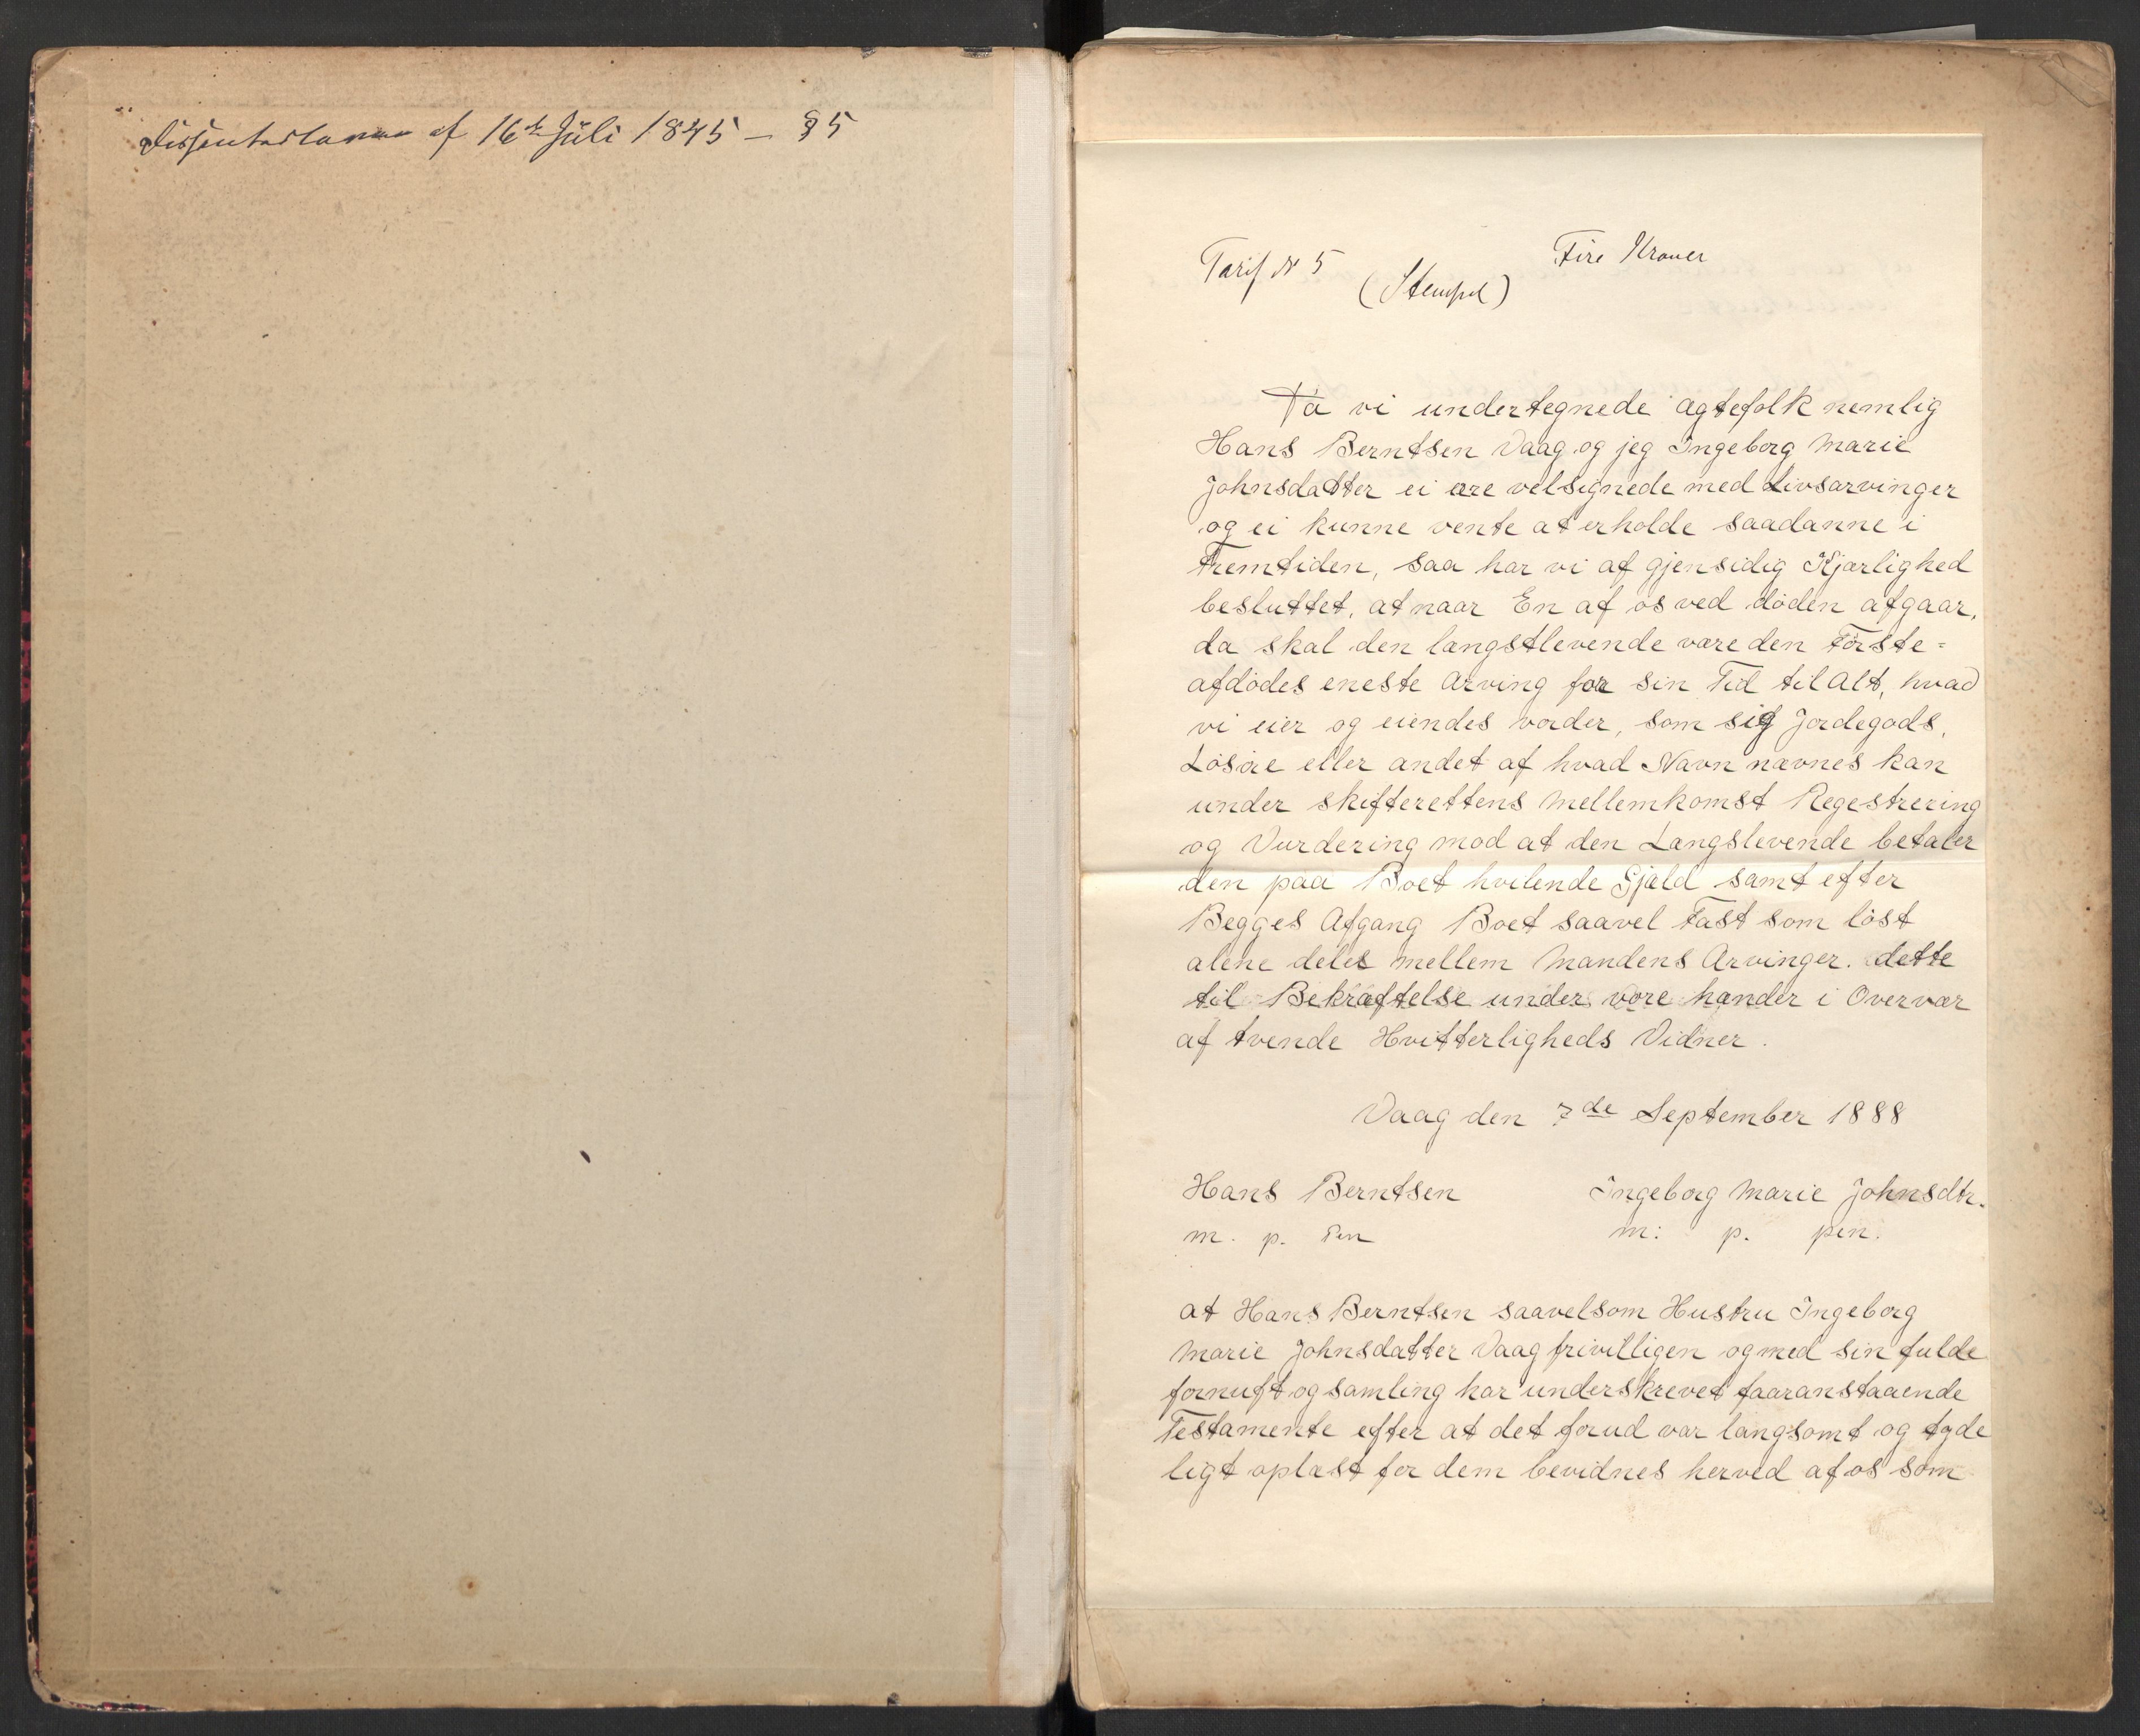 Dissenterloven af 16de Juli 1845 – §5
Tarif N 5
Fire Kroner
(Stempel)
Da vi undertegnede ægtefolk nemlig
Hans Berntsen Vaag og jeg Ingeborg Marie
Johnsdatter ei ere velsignede med Livsarvinger
og ei kunne vente at erholde saadanne i
Fremtiden, saa har vi af gjensidig Kjærlighed
besluttet, at naar En af os ved døden afgaar,
da skal den længstlevende være den Første=
afdødes eneste Arving for sin Tid til Alt, hvad
vi eier og eiendes vorder, som sig Jordegods,
Løsøre eller andet af hvad Navn nævnes kan
under skifterettens Mellemkomst Regestrering
og Vurdering mod at den Længslevende betaler
den paa Boet hvilende Gjæld samt efter
Begges Afgang Boet saavel Fast som løst
alene deles mellem Mandens Arvinger. dette
til Bekræftelse under vore hænder i Overvær
af tvende Hvitterligheds Vidner.
Vaag den 7de September 1888
Hans Berntsen
Ingeborg Marie Johnsdtr.
m. p. Pen
m: p. pen.
at Hans Berntsen saavelsom Hustru Ingeborg
Marie Johnsdatter Vaag frivilligen og med sin fulde
fornuft og samling har underskrevet faaranstaaende
Testamente efter at det forud var langsomt og tyde
ligt oplæst for dem bevidnes herved af os som